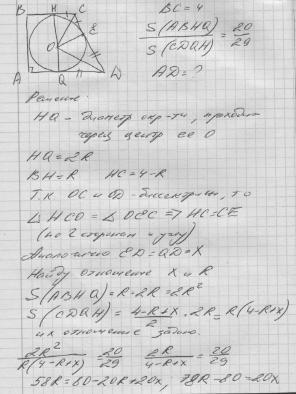 B H C
BC = 4
E
S(ABHQ) / S(CDQH) = 20/29
O
A Q D
AD = ?
Решение
HQ - диаметр окр-ти, проходит
через центр ее O
HQ = 2R
BH = R HC = 4-R
Т.к. OC и OD - биссектрисы, то
△ HCO = △ OEC => HC = CE
(по 2 сторонам и углу)
Аналогично ED = QD = X
Найду отношение X и R
S(ABHQ) = R·2R = 2R²
S(CDQH) = (4-R+X)/2 · 2R = R(4-R+X)
их отношение задано.
2R²/R(4-R+X) = 20/29 2R/4-R+X = 20/29
58R = 80-20R+20X, 78R-80 = 20X